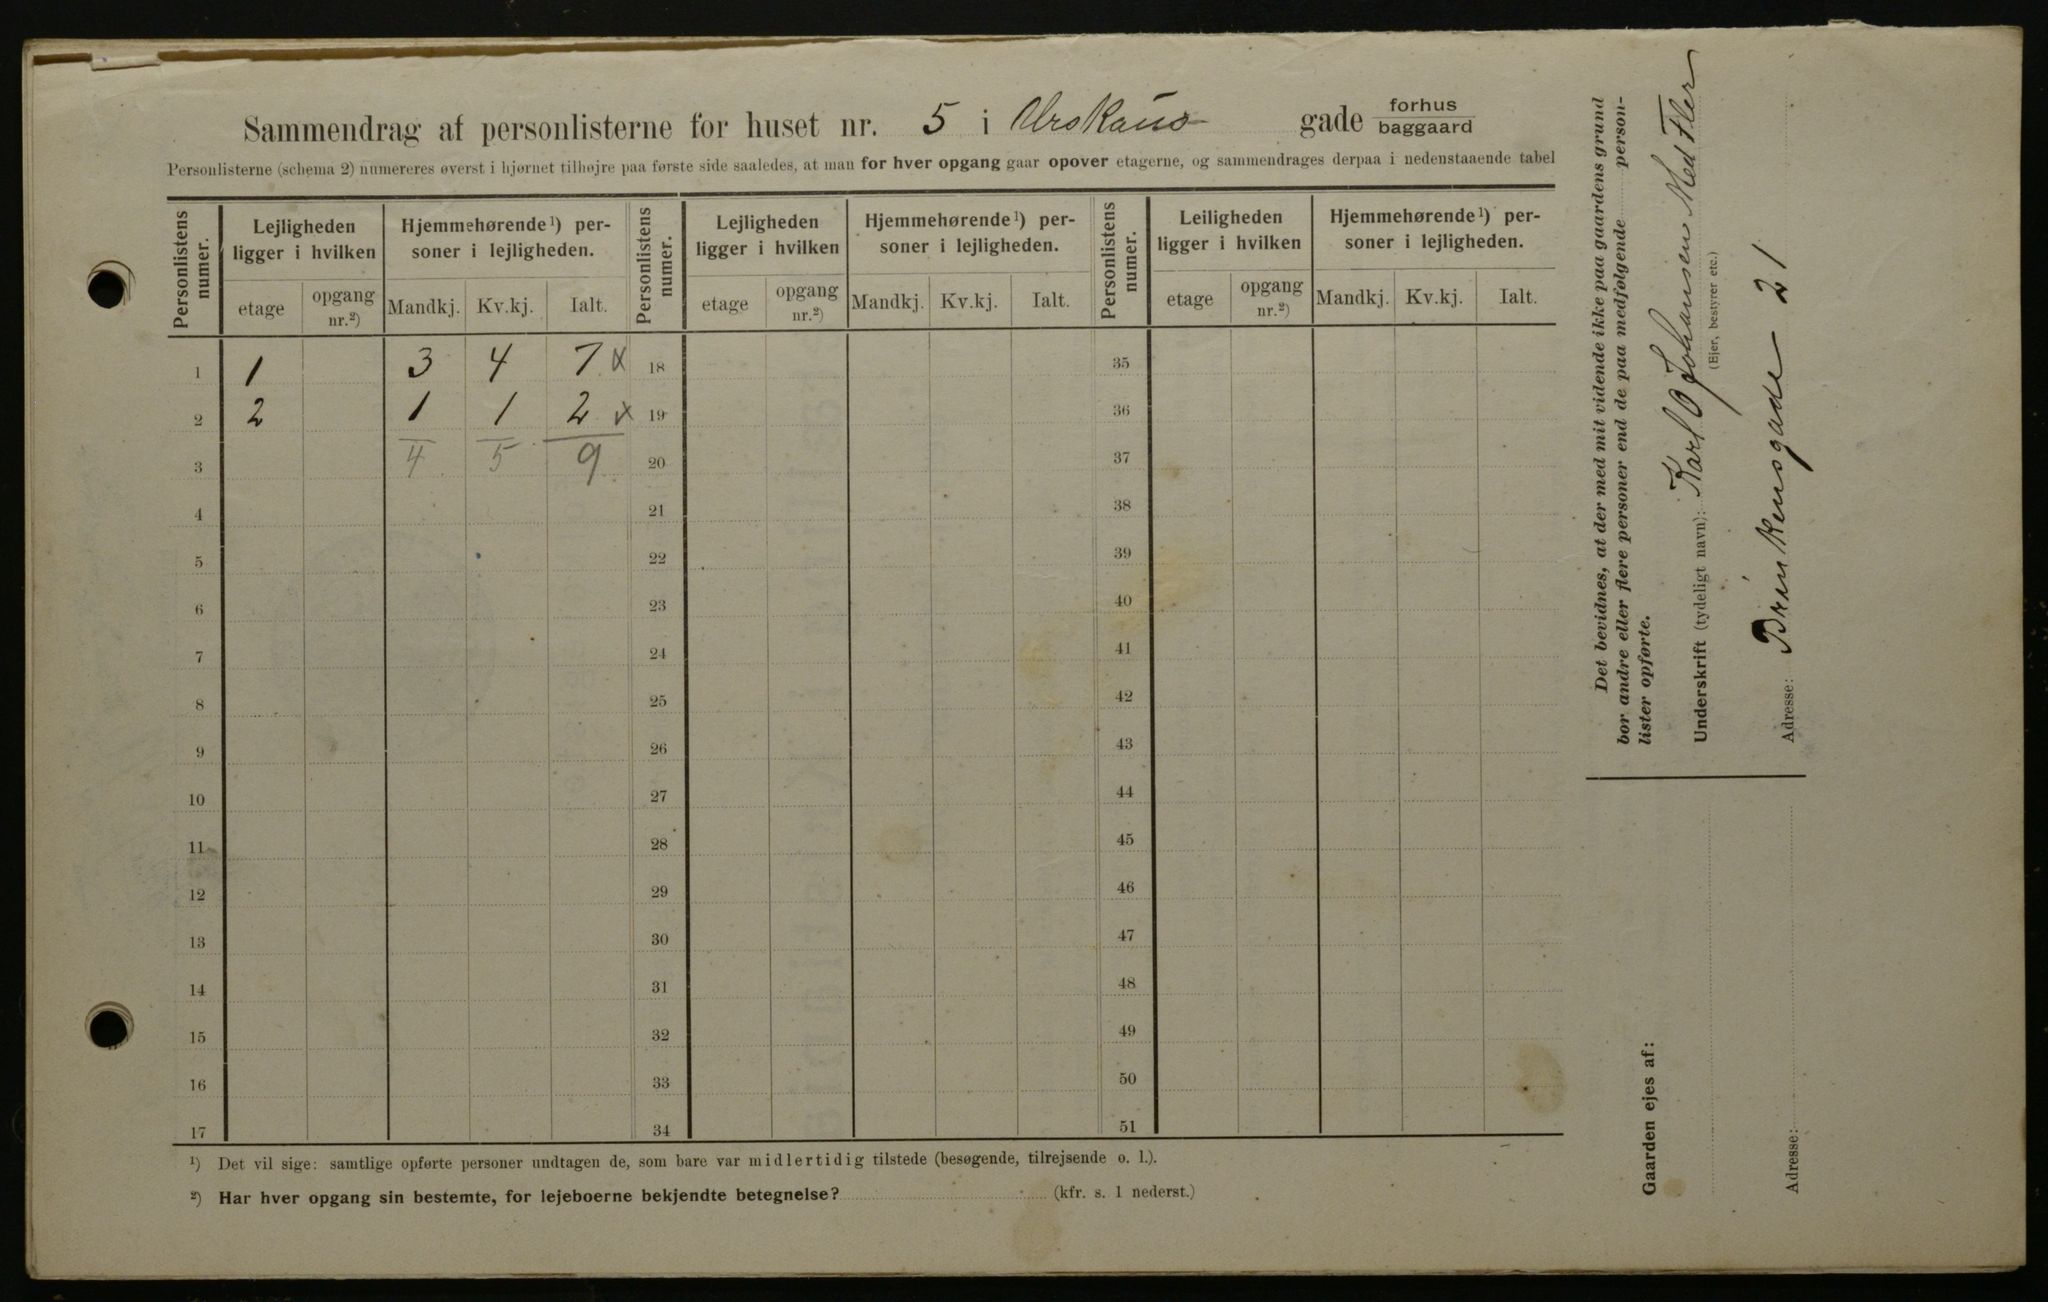 Sammendrag af personlisterne for huset nr. 5 i Urskaus gade forhus baggaard
Personlisterne (schema 2) numereres øverst i hjørnet tilhøjre paa første side saaledes, at man for hver opgang gaar opover etagerne, og sammendrages derpaa i nedenstaaende tabel
Personlistens numer. Lejligheden ligger i hvilken Hjemmehørende ¹) personer i lejligheden. Personlistens numer. Lejligheden ligger i hvilken Hjemmehørende ¹) personer i lejligheden. Personlistens numer. Leiligheden ligger i hvilken Hjemmehørende ¹) personer i lejligheden.
etage opgang nr.²) Mandkj. Kv.kj. Ialt. etage opgang nr.²) Mandkj. Kv.kj. Ialt. etage opgang nr.²) Mandkj. Kv.kj. Ialt.
1 1 3 4 7 x 18 35
2 2 1 1 2 x 19 36
3 4 5 9 20 37
4 21 38
5 22 39
6 23 40
7 24 41
8 25 42
9 26 43
10 27 44
11 28 45
12 29 46
13 30 47
14 31 48
15 32 49
16 33 50
17 34 51
¹) Det vil sige: samtlige opførte personer undtagen de, som bare var midlertidig tilstede (besøgende, tilrejsende o. l.).
²) Har hver opgang sin bestemte, for lejeboerne bekjendte betegnelse? (kfr. s. 1 nederst.)
Det bevidnes, at der med mit vidende ikke paa gaardens grund
bor andre eller flere personer end de paa medfølgende personlister opførte.
Underskrift (tydeligt navn): Karl O Johansen Med Fler
(Ejer, bestyrer etc.)
Adresse: Brinkensgade 21
Gaarden ejes af:
Adresse: